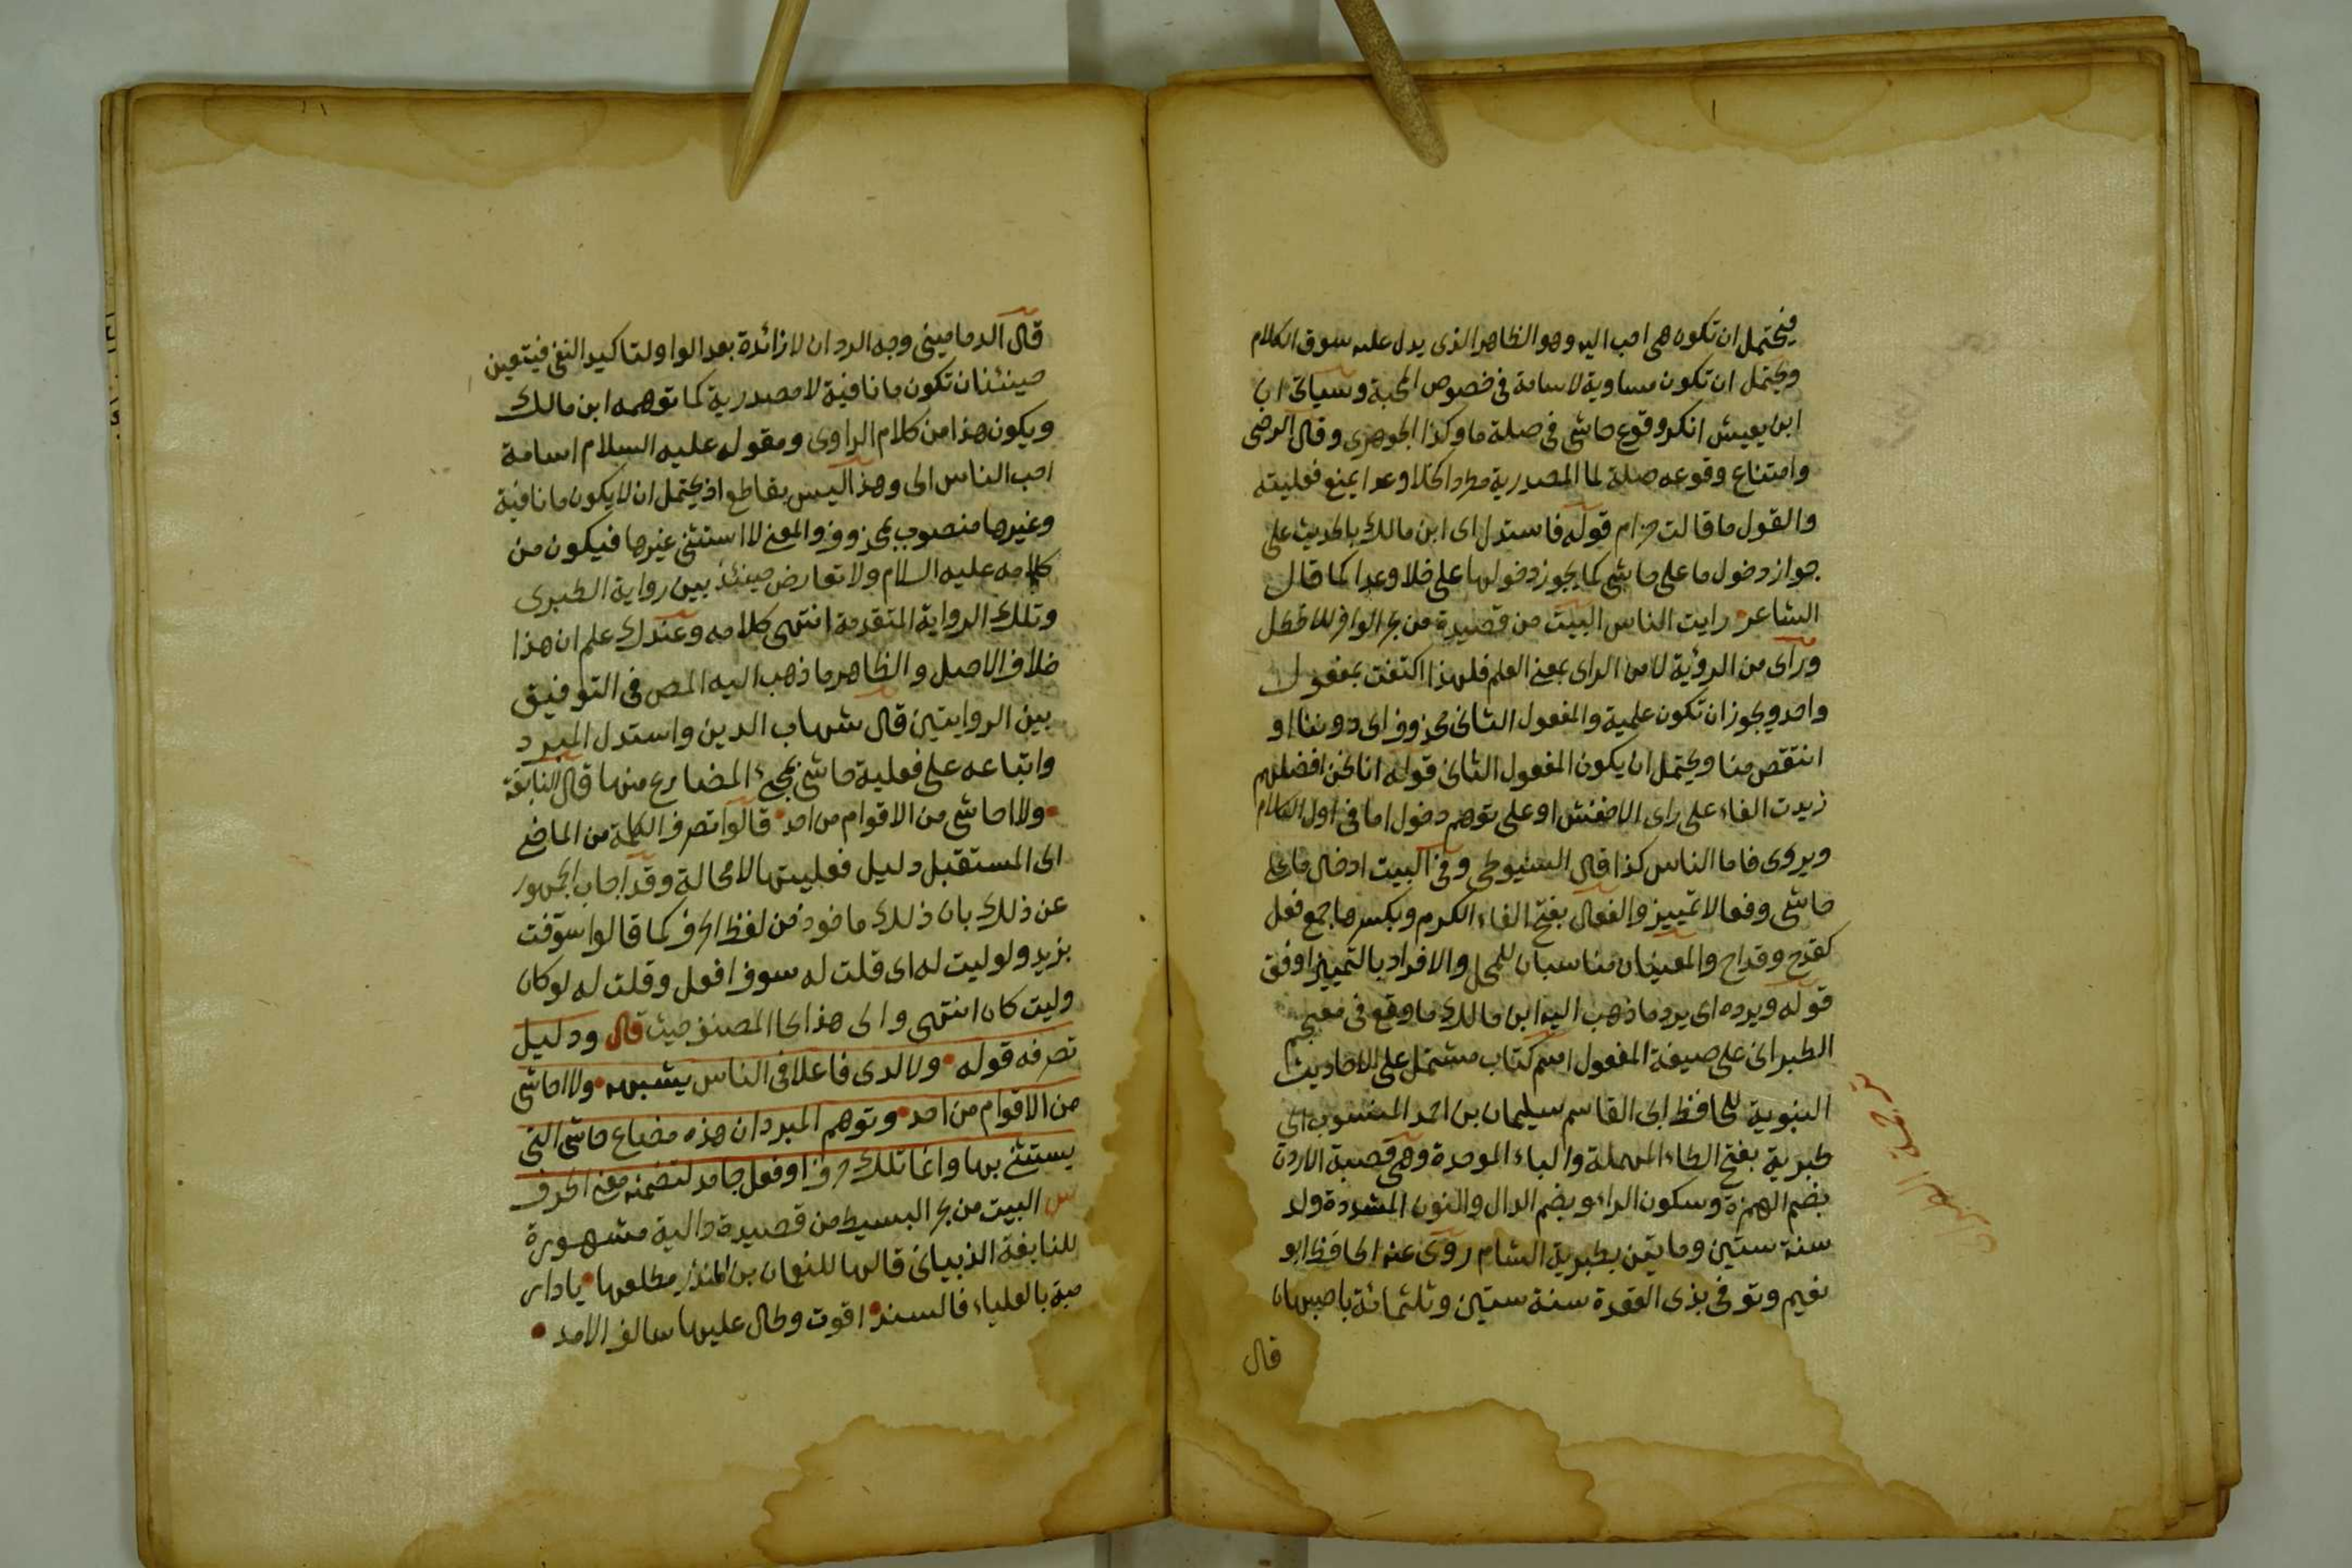 فيحتمل ان تكون هى احب اليه وهو الظاهر الذى يدل عليه سوق الكلام
ويحتمل ان تكون مساوية لاسامة فى خصوص المحبة وسياتى ان
ابن يعيش انكر وقوع حاشى فى صلة ما وكذا الجوهرى وقال الرضى
وامتناع وقوعه صلة لما المصدرية مطردا كخلا وعدا يمنع فعليته
والقول ما قالت حزام قوله فاستدل اى ابن مالك بالحديث على
جواز دخول ما على حاشى كما يجوز دخولها على خلا وعدا كما قال
الشاعر رايت الناس البيت من قصيدة من بحر الوافر للاخطل
وراى من الرؤية لا من الراى بمعنى العلم فلهذا اكتفت بمفعول
واحد ويجوز ان تكون علمية والمفعول الثانى محذوف اى دوننا او
انتقص منا ويحتمل ان يكون المفعول الثانى قوله انا نحن افضلهم
زيدت الفاء على راى الاخفش او على توهم دخول اما فى اول الكلام
ويروى فاما الناس كذا قال السيوطى وفى البيت ادخال ما على
حاشى وفعالا تمييز والفعال بفتح الفاء الكرم وبكسرها جمع فعل
كقدح وقداح والمعنيان مناسبان للمحل والافراد بالتمييز اوفق
قوله ويرده اى يرد ما ذهب اليه ابن مالك ما وقع فى معجم
الطبرانى على صيغة المفعول اسم كتاب مشتمل على الاحاديث
النبوية للحافظ ابى القاسم سليمان بن احمد المنسوب الى
طبرية بفتح الطاء المهملة والباء الموحدة وهى قصبة الاردن
بضم الهمزة وسكون الراء وبضم الدال والنون المشددة ولد
سنة ستين ومايتين بطبرية الشام روى عنه الحافظ ابو
نعيم وتوفى بذى القعدة سنة ستين وثلثمائة باصبهان
قال
قال الدمامينى وجه الرد ان لا زائدة بعد الواو لتاكيد النفى فيتعين
حينئذ ان تكون ما نافية لا مصدرية كما توهمه ابن مالك
ويكون هذا من كلام الراوى ومقوله عليه السلام اسامة
احب الناس الى وهذا ليس بقاطع اذ يحتمل ان لا يكون ما نافية
وغيرها منصوب بمحذوف والمعنى لا استثنى غيرها فيكون من
كلامه عليه السلام ولا تعارض حينئذ بين رواية الطبرى
وتلك الرواية المتقدمة انتهى كلامه وعندك علم ان هذا
خلاف الاصل والظاهر ما ذهب اليه المص فى التوفيق
بين الروايتين قال شهاب الدين واستدل المبرد
واتباعه على فعلية حاشى بمجئ المضارع منها قال النابغة
ولا احاشى من الاقوام من احد قالوا تصرف الكلمة من الماضى
الى المستقبل دليل فعليتها لا محالة وقد اجاب الجمهور
عن ذلك بان ذلك ماخوذ من لفظ الحرف كما قالوا سوفت
بزيد ولوليت له اى قلت له سوف افعل وقلت له لو كان
وليت كان انتهى والى هذا نحا المصنف حيث قال ودليل
تصرفه قوله ولا لدى فاعلا فى الناس يشبهه ولا احاشى
من الاقوام من احد وتوهم المبرد ان هذه مضارع حاشى التى
يستثنى بها وانما تلك حرف او فعل جامد لتضمنه معنى الحرف
س البيت من بحر البسيط من قصيدة دالية مشهورة
للنابغة الذبيانى قالها للنعمان بن المنذر مطلعها يا دار
مية بالعلياء فالسند اقوت وطال عليها سالف الامد